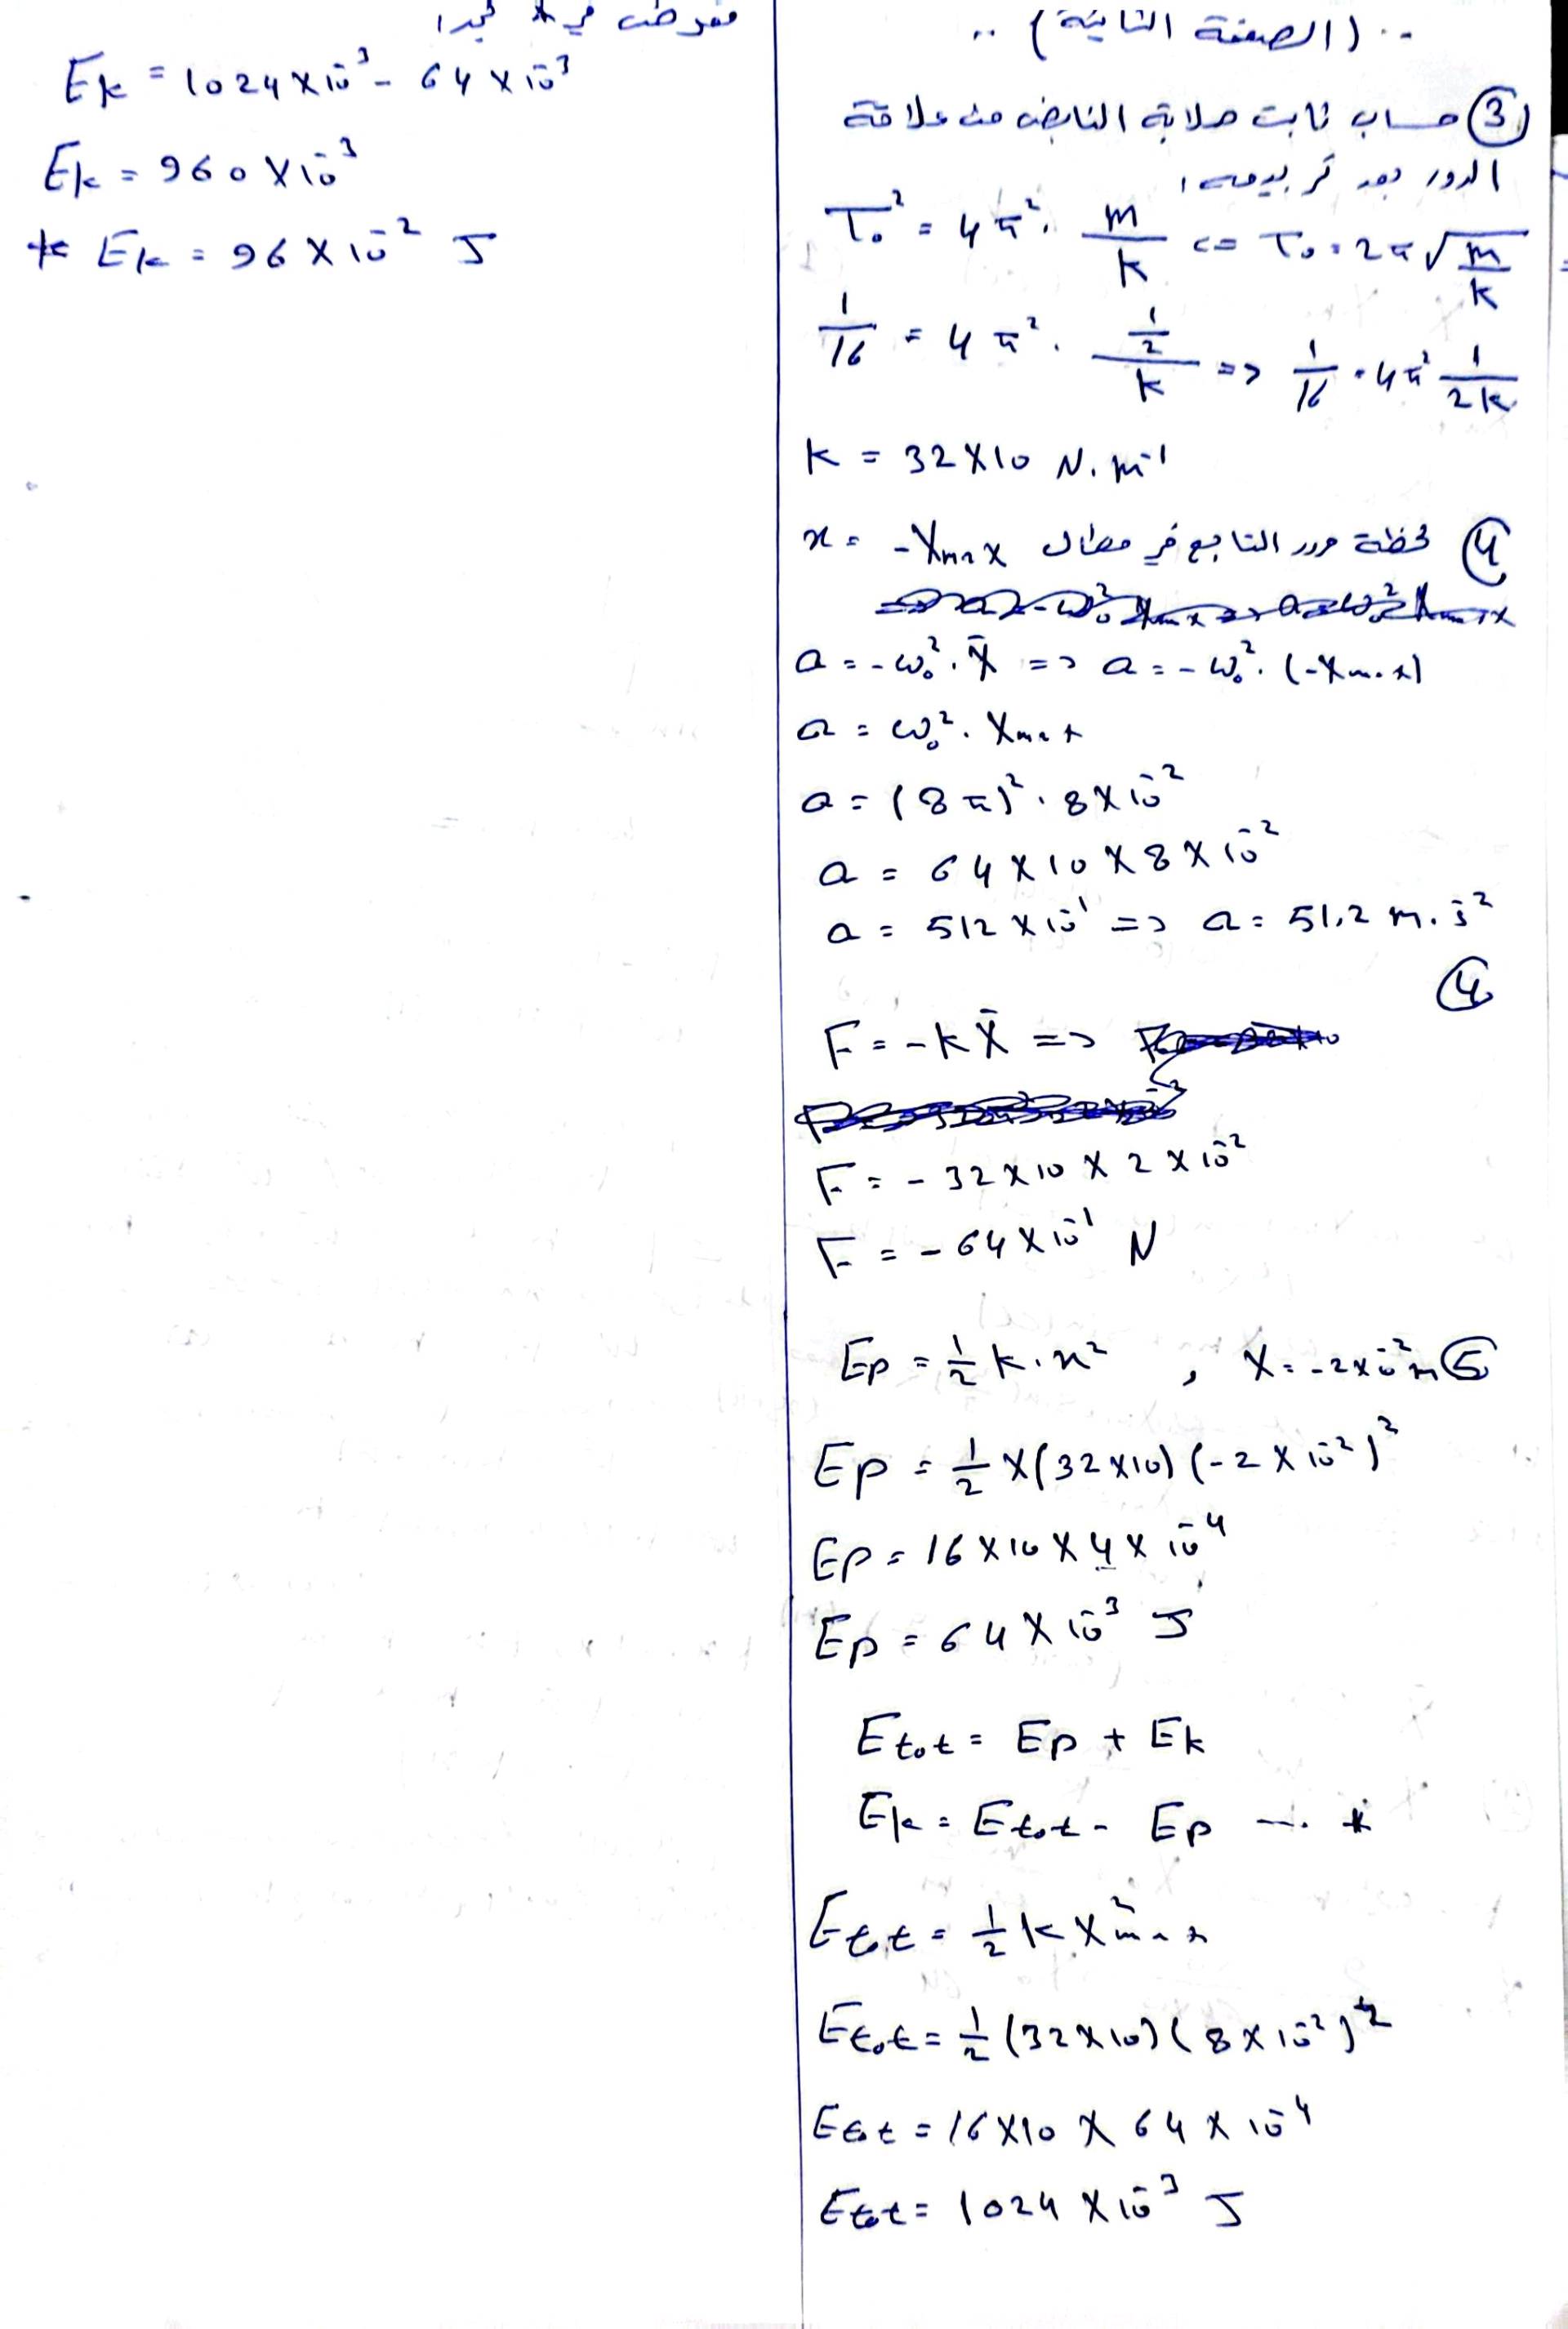 .. (الصفحة الثانية) ..
③ حساب ثابت صلابة النابض من علاقة
الدور بعد تربيعه:
T₀² = 4π² · m/k <= T₀ = 2π√(m/k)
1/16 = 4π² · (1/2)/k => 1/16 = 4π² 1/2k
k = 32×10 N.m⁻¹
④ لحظة مرور التابع في مطال x = -Xmax
a = -ω₀² · x̄ => a = -ω₀² · (-Xmax)
a = ω₀² · Xmax
a = (8π)² · 8×10⁻²
a = 64×10×8×10⁻²
a = 512×10⁻¹ => a = 51,2 m.s⁻²
④
F = -k x̄ =>
F = -32×10×2×10⁻²
F = -64×10⁻¹ N
Ep = 1/2 k.x² , X = -2×10⁻² m ⑤
Ep = 1/2 × (32×10) (-2×10⁻²)²
Ep = 16×10×4×10⁻⁴
Ep = 64×10⁻³ J
Etot = Ep + Ek
Ek = Etot - Ep ... *
Etot = 1/2 k X²max
Etot = 1/2 (32×10) (8×10⁻²)²
Etot = 16×10×64×10⁻⁴
Etot = 1024×10⁻³ J
نعوض في * نجد:
Ek = 1024×10⁻³ - 64×10⁻³
Ek = 960×10⁻³
* Ek = 96×10⁻² J